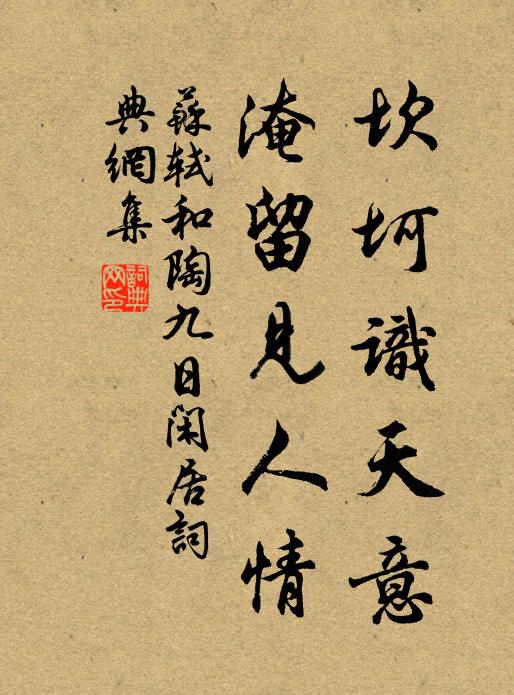 坎坷識天意
淹留見人情
蘇軾和陶九日閑居詞
典網集
詞典網印